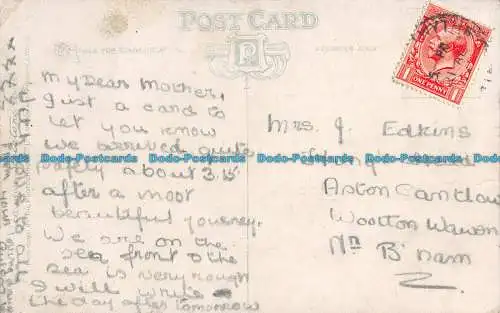 POST CARD
My dear Mother,
Just a card to
let you know
we arrived quite
safely about 3.15
after a most
beautiful journey.
We are on the
sea front & the
sea is very rough
I will write
the day after tomorrow
Mrs. J. Edkins
Aston Cantlow
Wootton Wawen
Nr B'ham
ONE PENNY
Dodo-Postcards Dodo-Postcards Dodo-Postcards Dodo-Postcards